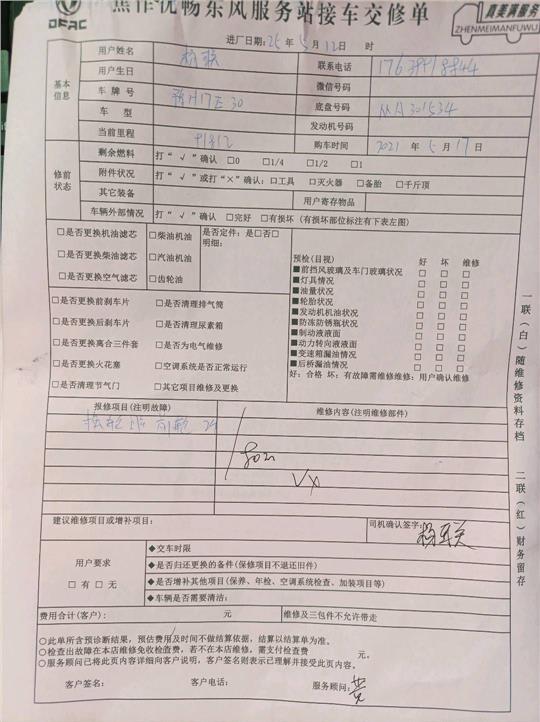 焦作优畅东风服务站接车交修单
DFAC
真美满服务
ZHENMEIMANFUWU
进厂日期: 25 年 5 月 12 日 时
基本信息
用户姓名 联系电话
用户生日 微信号码
车牌号 豫H17E30 底盘号码 MA301534
车型 发动机号码
当前里程 购车时间 2021 年 5 月 17 日
修前状态
剩余燃料 打“√”确认 □0 □1/4 □1/2 □1
附件状况 打“√”或打“×”确认: □工具 □灭火器 □备胎 □千斤顶
其它装备 用户寄存物品
车辆外部情况 打“√”确认 □完好 □有损坏 (有损坏部位标注有下表左图)
□是否更换机油滤芯 □柴油机油 是否定件: 是□否□
□是否更换柴油滤芯 □汽油机油 明细:
□是否更换空气滤芯 □齿轮油
预检(目视) 好 坏 维修
■前挡风玻璃及车门玻璃状况 □ □ □
■灯具情况 □ □ □
■油量状况 □ □ □
■轮胎状况 □ □ □
■发动机机油状况 □ □ □
■防冻防锈瓶状况 □ □ □
■制动液液面 □ □ □
■动力转向液液面 □ □ □
■变速箱漏油情况 □ □ □
■后桥漏油情况 □ □ □
好: 合格 坏: 有故障需维修维修: 用户确认维修
□是否更换前刹车片 □是否清理排气筒
□是否更换后刹车片 □是否清理尿素箱
□是否更换离合三件套 □是否为电气维修
□是否更换火花塞 □空调系统是否正常运行
□是否清理节气门 □其它项目维修及更换
报修项目(注明故障) 维修内容(注明维修部件)
建议维修项目或增补项目: 司机确认签字:
用户要求
□有 □无
◆交车时限
◆是否归还更换的备件(保修项目不退还旧件)
◆是否增补其他项目(保养、年检、空调系统检查、加装项目等)
◆车辆是否需要清洁:
费用合计(客户): 元 维修及三包件不允许带走
○此单所含预诊断结果,预估费用及时间不做结算依据,结算以结算单为准。
○检查出故障在本店维修免收检查费,若不在本店维修,需支付检查费 元。
○服务顾问已将此页内容详细向客户说明,客户签名则表示已理解并接受此页内容。
客户签名: 客户电话: 服务顾问: 黄
一联(白)随维修资料存档 二联(红)财务留存